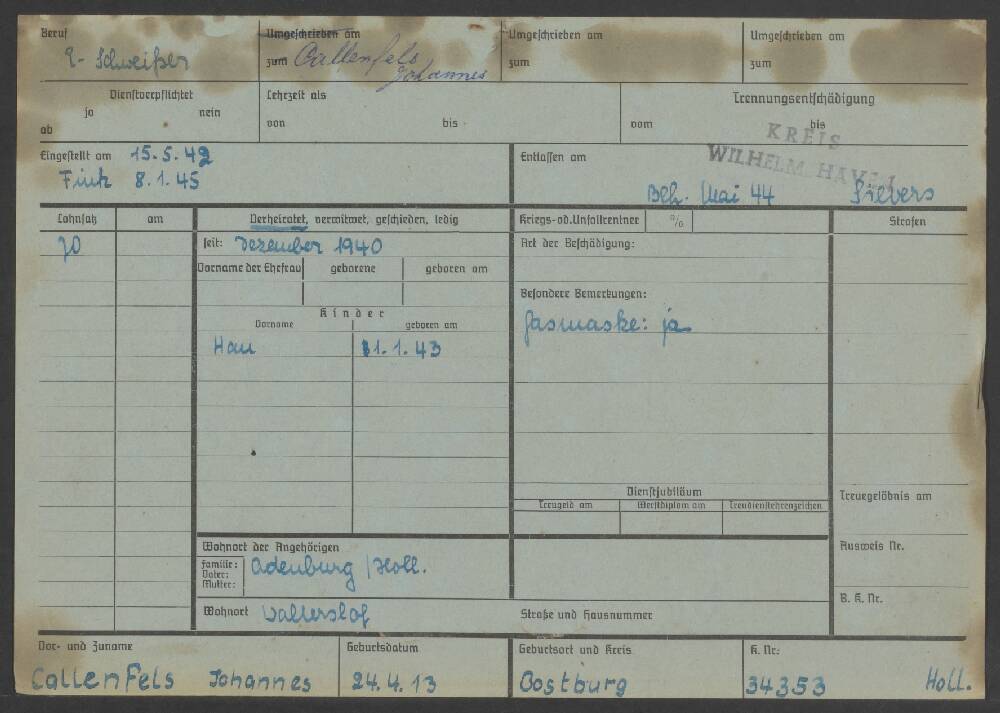 Beruf
E-Schweißer
Umgeschrieben am
zum Callenfels
Johannes
Umgeschrieben am
zum
Umgeschrieben am
zum
Dienstverpflichtet
ja nein
ab
Lehrzeit als
von bis
Trennungsentschädigung
vom bis
KREIS
WILHELM HAVEN
Eingestellt am 15.5.42
8.1.45
Entlassen am
Mai 44 Sievers
Lohnsatz am
Verheiratet, verwitwet, geschieden, ledig
Kriegs-od.Unfallrentner %
Strafen
70
seit: Dezember 1940
Art der Beschädigung:
Vorname der Ehefrau geborene geboren am
Besondere Bemerkungen:
Gasmaske: ja
Kinder
Vorname geboren am
Han 1.1.43
Dienstjubiläum
Treugeld am Werftdiplom am Treudienstehrenzeichen
Treuegelöbnis am
Wohnort der Angehörigen
Familie:
Vater:
Mutter:
Adenburg /Holl.
Ausweis Nr.
B. K. Nr.
Wohnort Wallerslof
Straße und Hausnummer
Vor- und Zuname
Callenfels Johannes
Geburtsdatum
24.4.13
Geburtsort und Kreis
Oostburg
K. Nr:
34353 Holl.